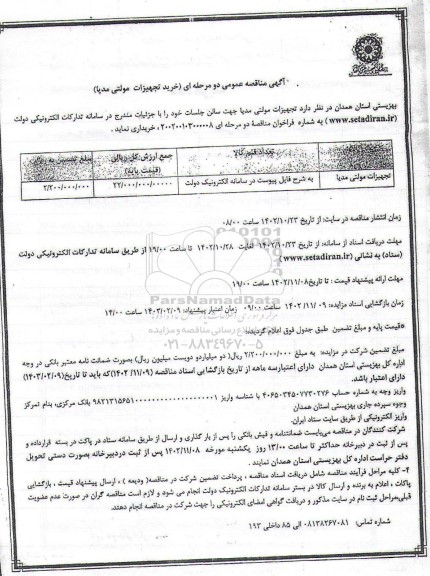 آگهی مناقصه عمومی دو مرحله ای (خرید تجهیزات مولتی مدیا)
بهزیستی استان همدان در نظر دارد تجهیزات مولتی مدیا جهت سالن جلسات خود را با جزئیات مندرج در سامانه تدارکات الکترونیکی دولت
(www.setadiran.ir) به شماره فراخوان مناقصه دو مرحله ای ۲۰۰۲۰۰۱۰۳۰۰۰۰۰۸ خریداری نماید.
تعداد جمع ارزش کل ریالی مبلغ تضمین به
(قیمت پایه)
تجهیزات مولتی مدیا به شرح فایل پیوست در سامانه الکترونیک دولت ۲/۲۰۰/۰۰۰/۰۰۰
زمان انتشار مناقصه در سایت: از تاریخ ۱۴۰۲/۱۰/۲۳ ساعت ۰۸/۰۰
مهلت دریافت اسناد از سامانه: از تاریخ ۱۴۰۲/۱۰/۲۳ لغایت ۱۴۰۲/۱۰/۲۸ تا ساعت ۱۹/۰۰ از طریق سامانه تدارکات الکترونیکی دولت
(ستاد) به نشانی (www.setadiran.ir)
مهلت ارائه پیشنهاد قیمت: تا تاریخ ۱۴۰۲/۱۱/۰۸ ساعت ۱۹/۰۰
زمان بازگشایی اسناد مزایده: ۱۴۰۲/۱۱/۰۹ ساعت ۰۹/۰۰ زمان اعتبار پیشنهاد: ۱۴۰۳/۰۲/۰۹ ساعت ۱۴/۰۰
قیمت پایه و مبلغ تضمین طبق جدول فوق اعلام گردیده:
مبلغ تضمین شرکت در مزایده: به مبلغ ۲/۲۰۰/۰۰۰/۰۰۰ ریال( دو میلیاردو دویست میلیون ریال) بصورت ضمانت نامه معتبر بانکی در وجه
اداره کل بهزیستی استان همدان دارای اعتبارسه ماهه از تاریخ بازگشایی اسناد مناقصه (۱۴۰۲/۱۱/۰۹که باید تا تاریخ(۱۴۰۳/۰۲/۰۹)
دارای اعتبار باشد.
واریز وجه به شماره حساب ۴۰۶۵۰۳۴۵۰۷۷۳۰۲۷۶ با شناسه واریز بانک مرکزی، بنام تمرکز
وجوه سپرده جاری بهزیستی استان همدان
واریز الکترونیکی از طریق سایت ستاد ایران.
شرکت کنندگان در مناقصه می‌بایست ضمانتنامه و فیش بانکی را پس از بار گذاری و ارسال از طریق سامانه ستاد در پاکت در بسته قرارداده و
پس از ثبت در دبیرخانه حداکثر تا ساعت ۱۳/۰۰ روز یکشنبه مورخه ۱۴۰۲/۱۱/۰۸ پس از ثبت دردبیرخانه بصورت دستی تحویل
دفتر حراست اداره کل بهزیستی استان همدان نمایند.
۴- کلیه مراحل فرآیند مناقصه شامل دریافت اسناد مناقصه ، پرداخت تضمین شرکت در مناقصه( ودیعه ) ، ارسال پیشنهاد قیمت ، بازگشایی
پاکات ، اعلام به برنده و ارسال کالا در بستر سامانه تدارکات الکترونیکی دولت انجام می شود و لازم است مناقصه گران در صورت عدم عضویت
قبلی،مراحل ثبت نام در سایت مذکور و دریافت گواهی امضای الکترونیکی را جهت شرکت در مناقصه انجام دهند.
شماره تماس: ۰۸۱۳۸۲۶۷۰۸۱ الی ۸۵ داخلی ۱۹۳
ParsNamadData
۰۲۱-۸۸۳۴۹۶۷۰-۵